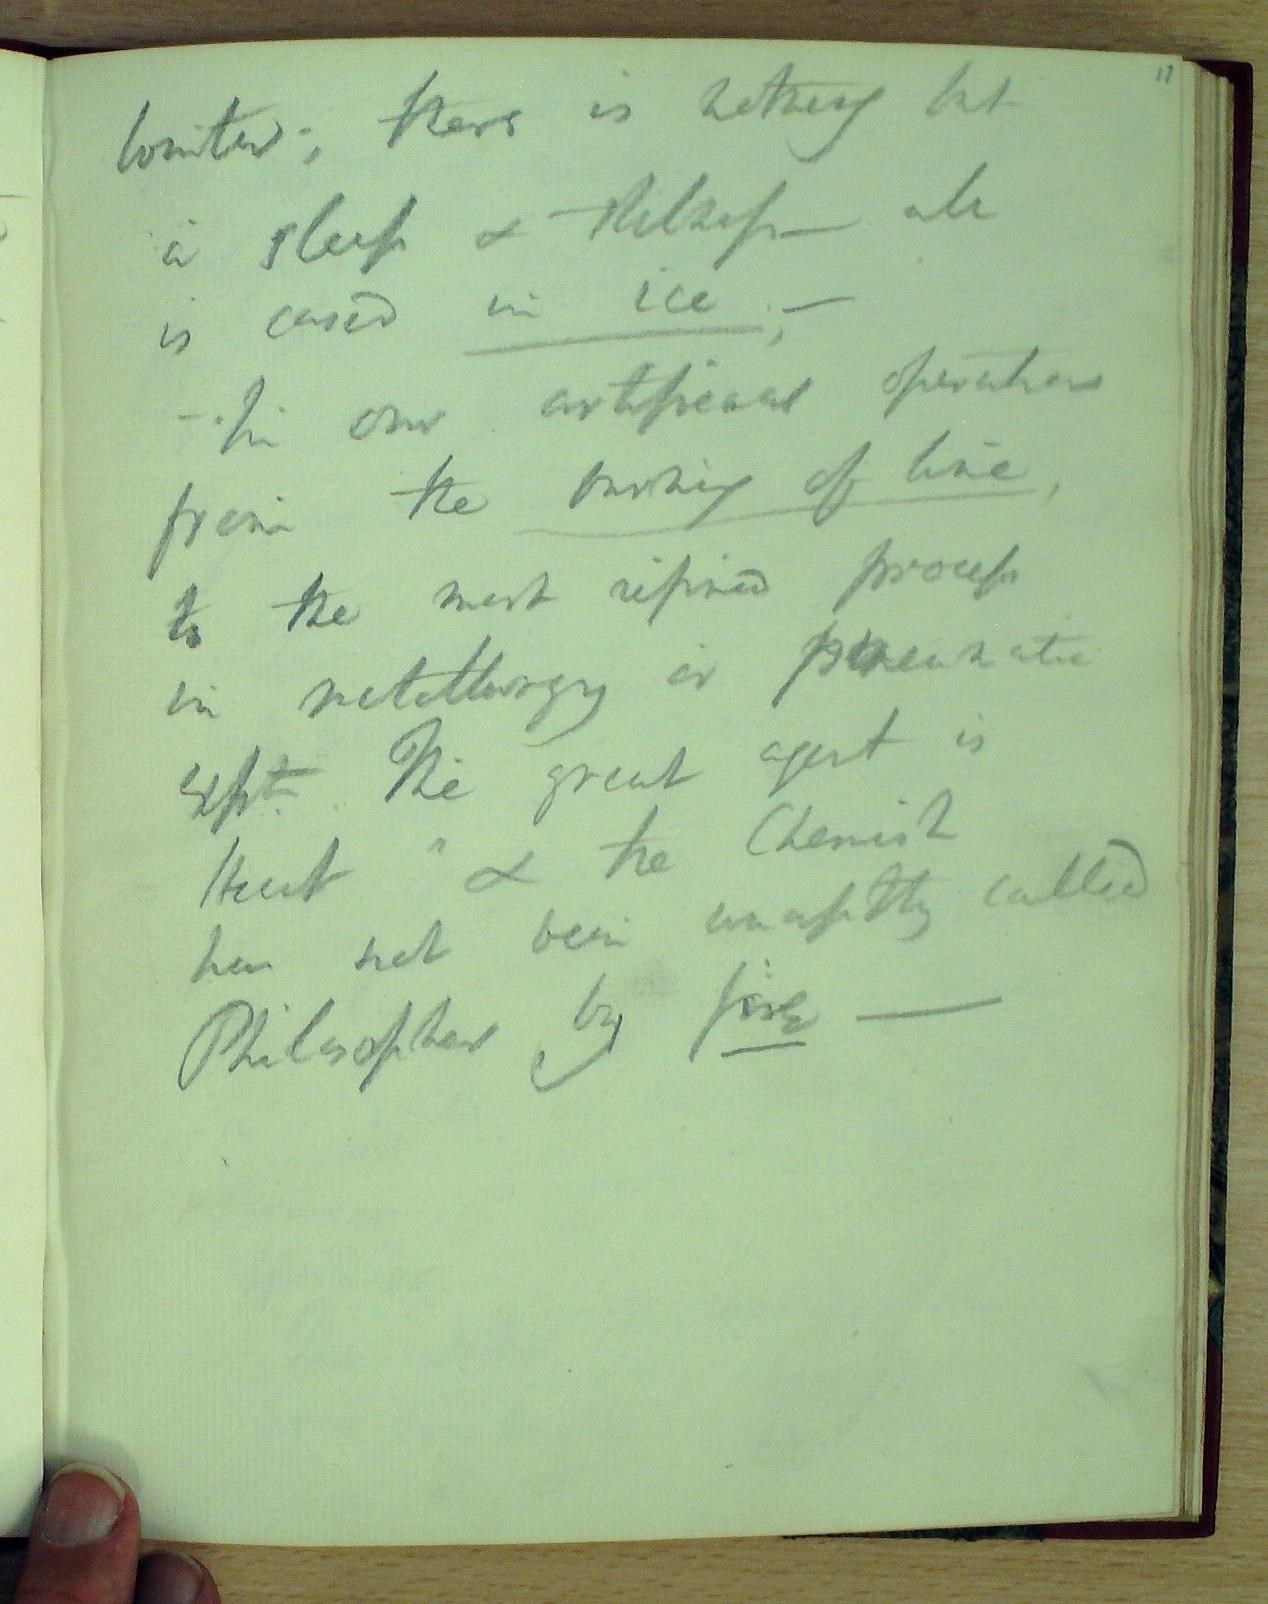 17
winter; there is nothing but
a sleep & stillness— all
is cased in ice;—
-. In our artificial operations
from the burning of lime,
to the most refined process
in metallurgy or pneumatic
Expt. The great agent is
Heat & the Chemist
has not been unaptly called
Philosopher by fire —